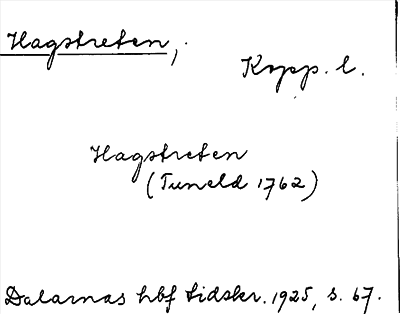 Hagstreten,
Kopp. l.
Hagstreten
(Tuneld 1762)
Dalarnas hbf tidskr. 1925, s. 67.